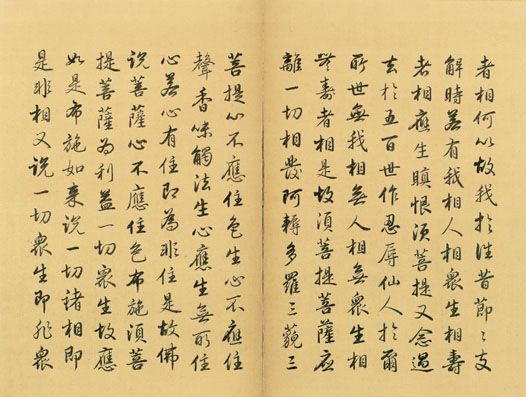 者相何以故我於往昔節〻支
解時若有我相人相眾生相壽
者相應生瞋恨須菩提又念過
去於五百世作忍辱仙人於爾
所世無我相無人相無眾生相
無壽者相是故須菩提菩薩應
離一切相發阿耨多羅三藐三
菩提心不應住色生心不應住
聲香味觸法生心應生無所住
心若心有住即為非住是故佛
說菩薩心不應住色布施須菩
提菩薩為利益一切眾生故應
如是布施如來說一切諸相即
是非相又說一切眾生即非眾